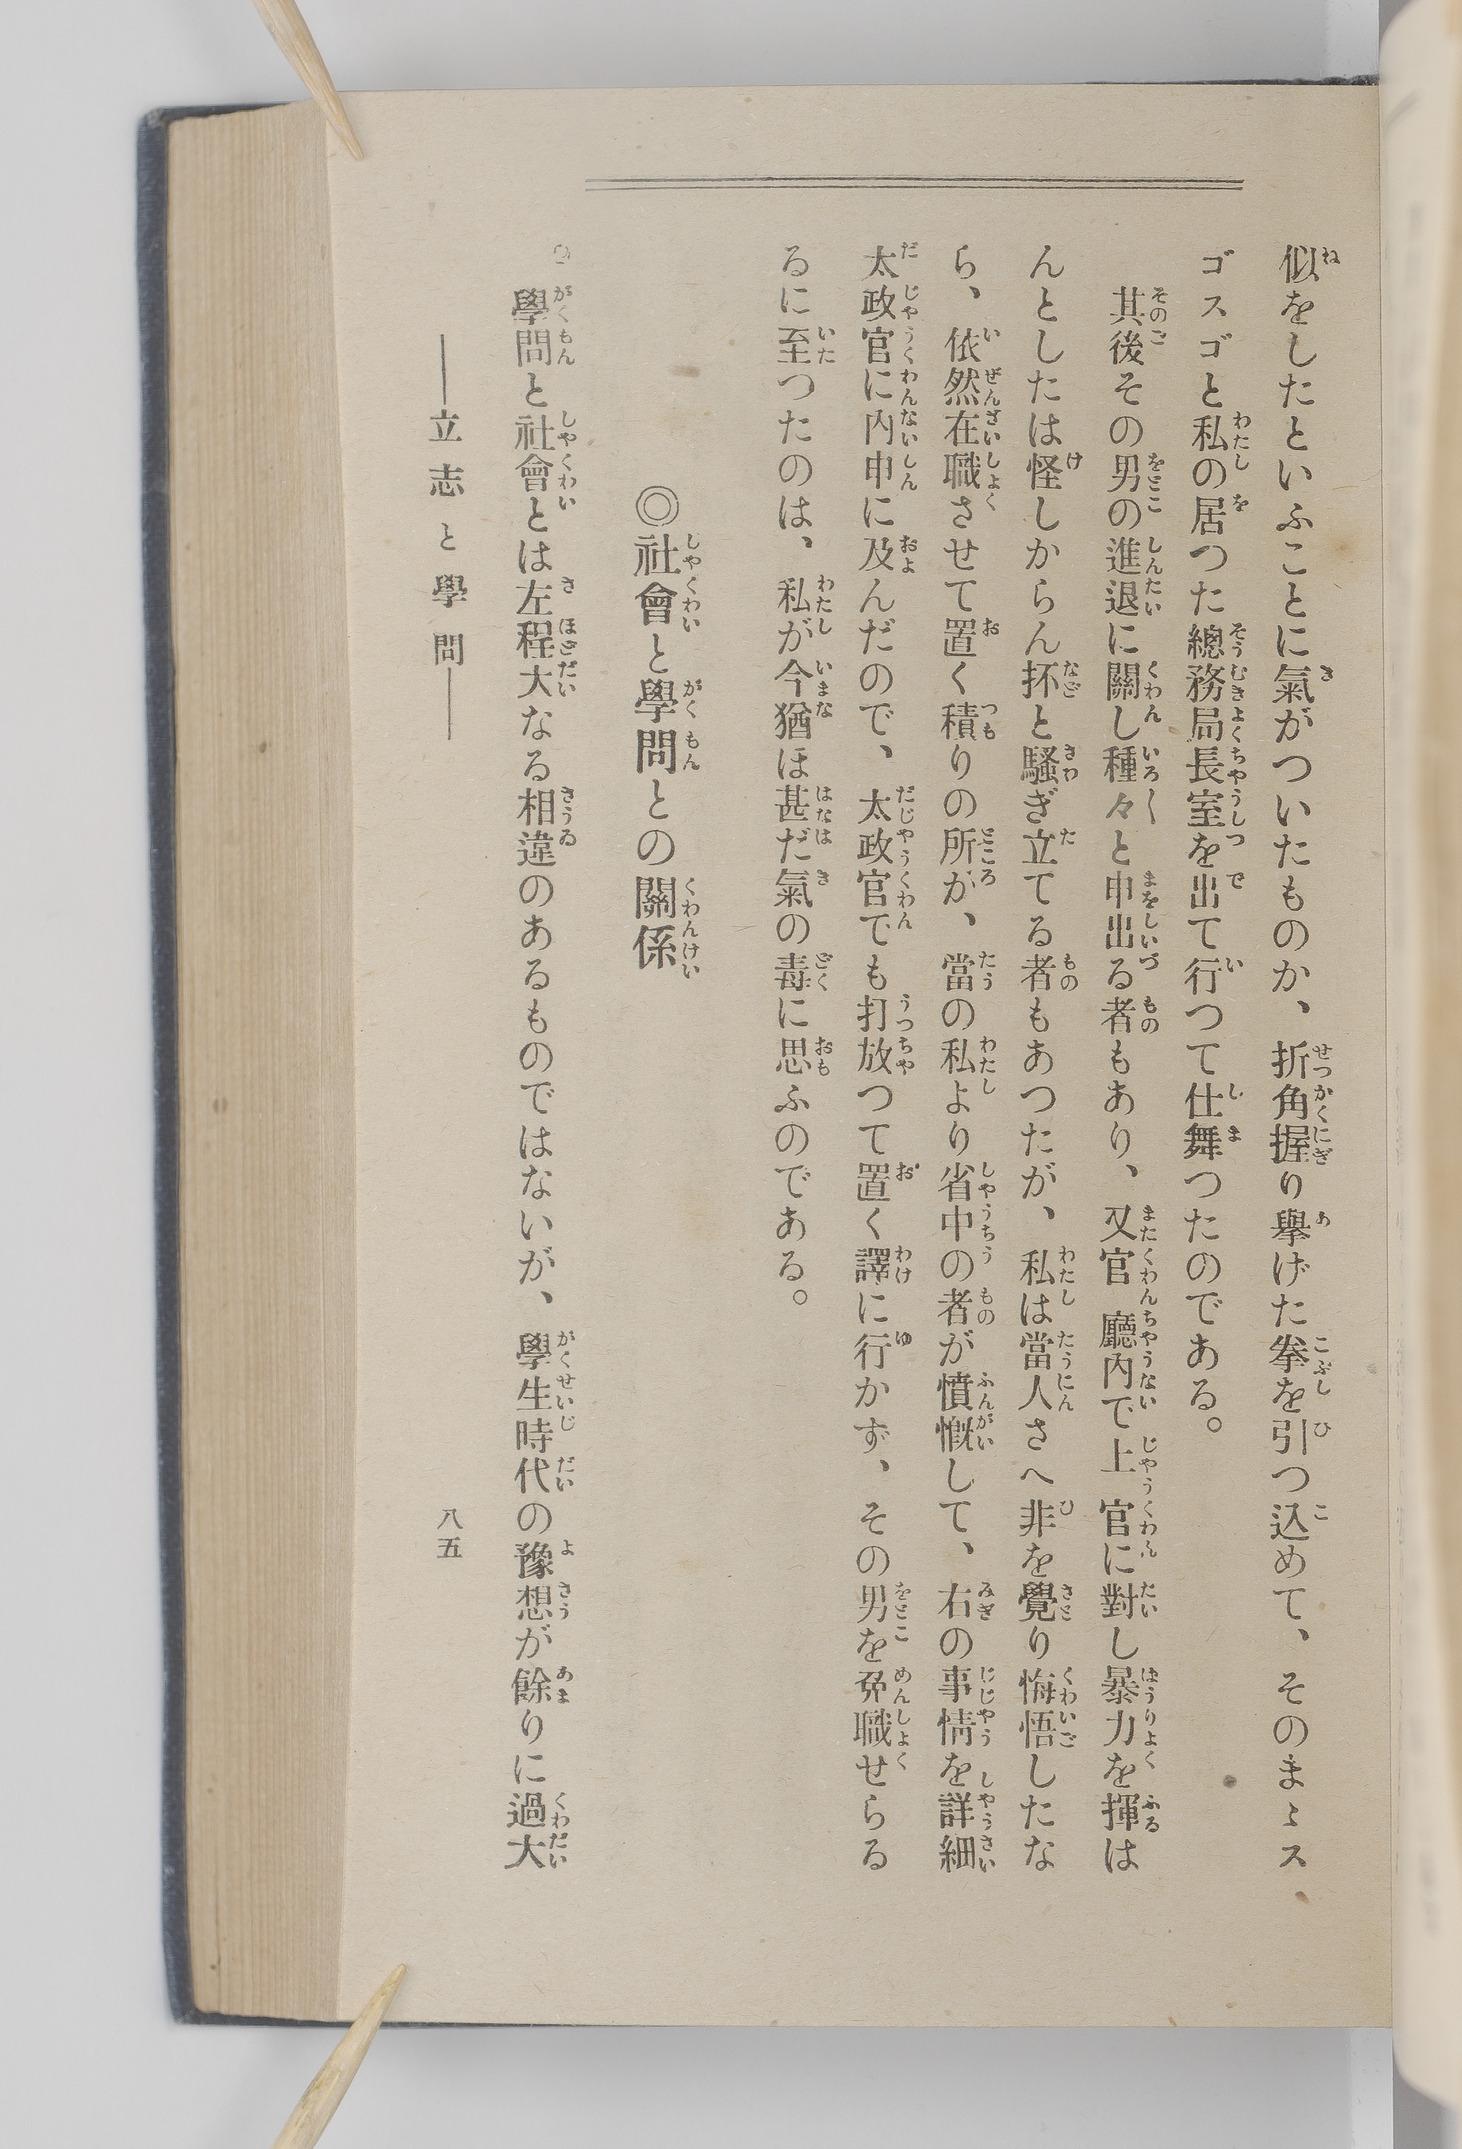 似をしたといふことに氣がついたものか、折角握り擧げた拳を引つ込めて、そのまゝス
ゴスゴと私の居つた總務局長室を出て行つて仕舞つたのである。
其後その男の進退に關し種々と申出る者もあり、又官廳內で上官に對し暴力を揮は
んとしたは怪しからん抔と騷ぎ立てる者もあつたが、私は當人さへ非を覺り悔悟したな
ら、依然在職させて置く積りの所が、當の私より省中の者が憤慨して、右の事情を詳細
太政官に內申に及んだので、太政官でも打放つて置く譯に行かず、その男を免職せらる
るに至つたのは、私が今猶ほ甚だ氣の毒に思ふのである。
◎社會と學問との關係
學問と社會とは左程大なる相違のあるものではないが、學生時代の豫想が餘りに過大
―立志と學問―
八五